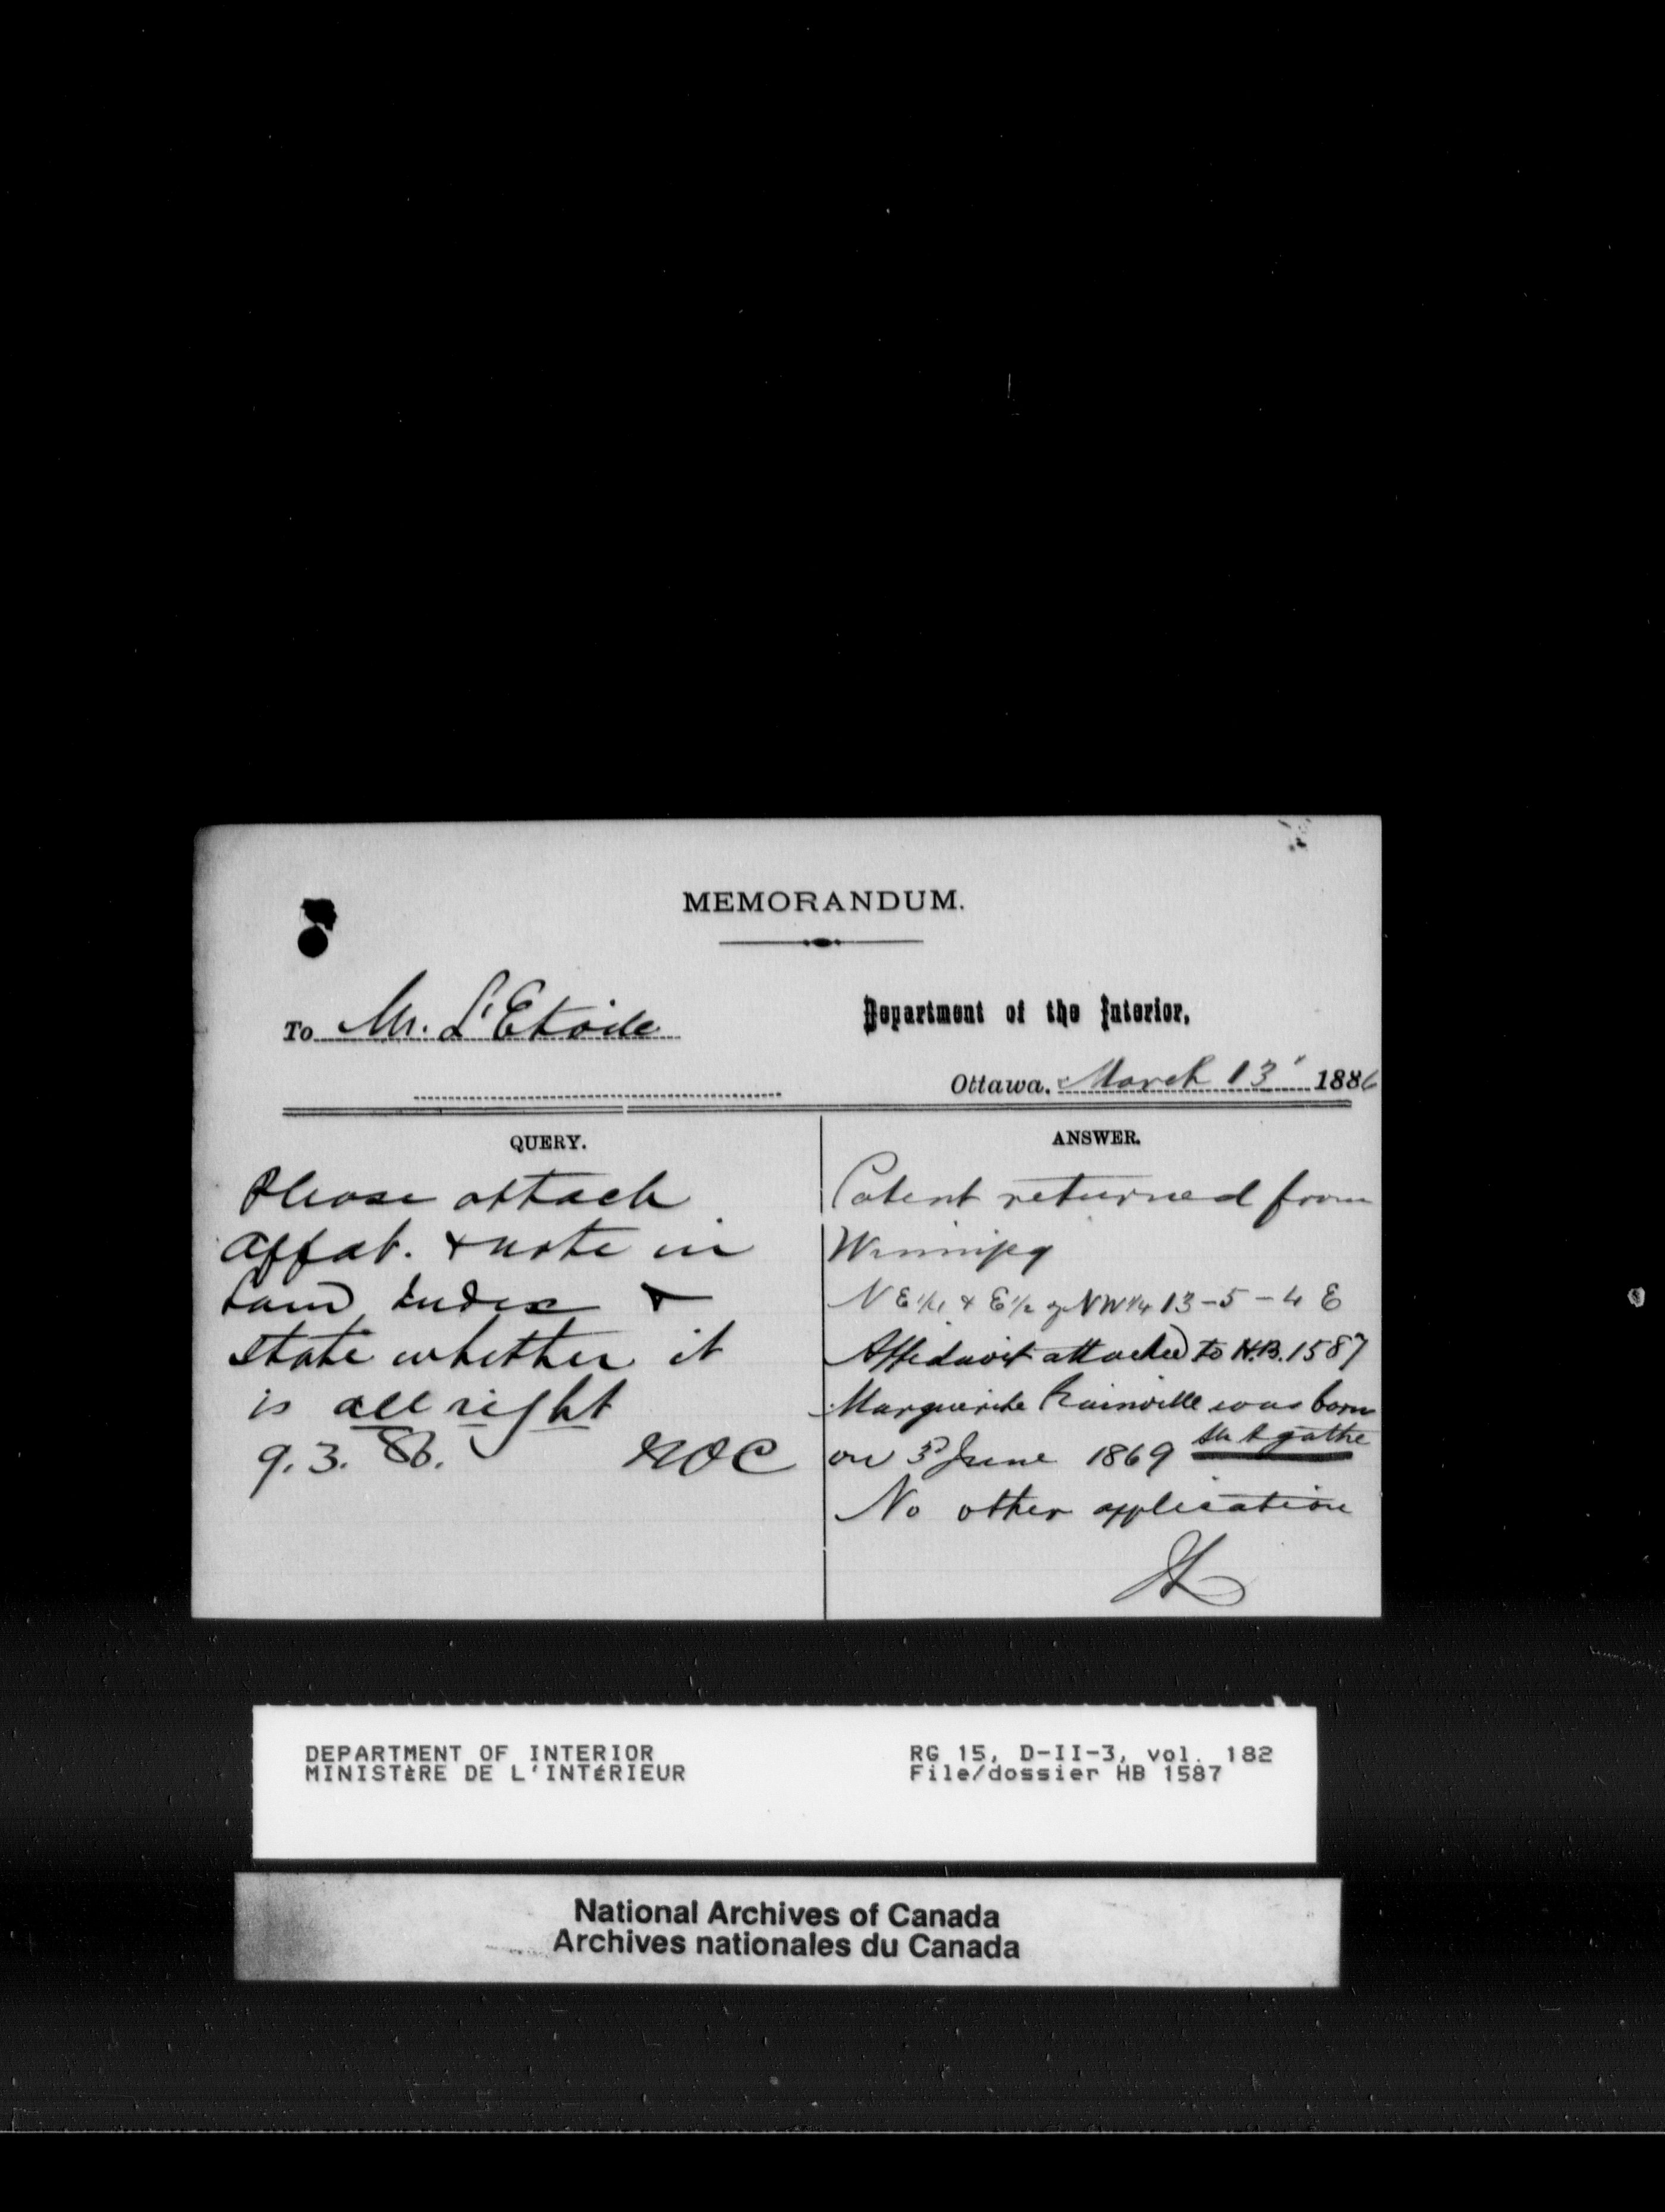 MEMORANDUM.
To Mr. L'Etoile
Department of the Interior,
Ottawa. March 13 1886
QUERY.
Please attach
affat. & note in
Land Index &
state whether it
is all right
9.3.86.
ANSWER.
Patent returned from
Winnipeg
N E 1/4 & E 1/2 of N W 1/4 13-5-4 E
Affidavit attached to H.B. 1587
Marguerite Rainville was born
on 3d June 1869 Ste Agathe
No other application
DEPARTMENT OF INTERIOR
MINISTÈRE DE L'INTÉRIEUR
RG 15, D-II-3, vol. 182
File/dossier HB 1587
National Archives of Canada
Archives nationales du Canada